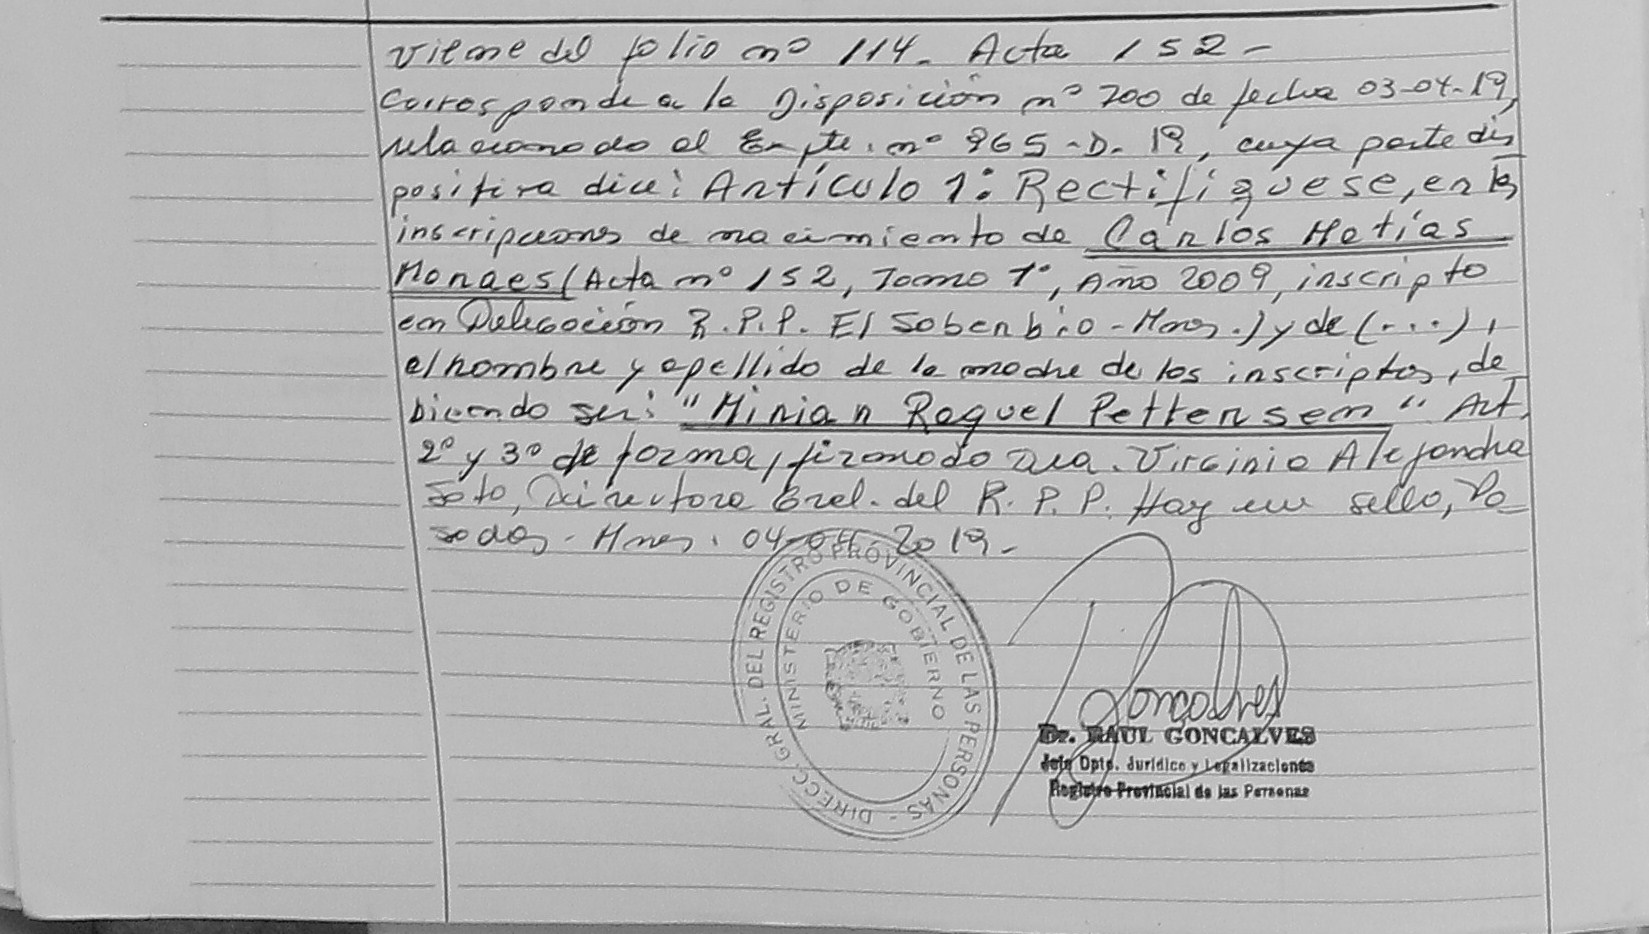 Viene del folio nº 114. Acta 152-
Corresponde a la Disposición nº 700 de fecha 03-04-19,
relacionado al Expte. nº 965-D-19, cuya parte dis
positiva dice: Artículo 1: Rectifíquese, en las
inscripciones de nacimiento de Carlos Matías
Moraes (Acta nº 152, Tomo 1º, Año 2009, inscripto
en Delegación R.P.P. El Soberbio-Mnes.) y de (...),
el nombre y apellido de la madre de los inscriptos, de
biendo ser: "Mirian Raquel Pettersem" Art.
2º y 3º de forma, firmado Dra. Virginia Alejandra
Soto, Directora Gral. del R.P.P. Hay un sello, Po_
sadas-Mnes. 04-04-2019.-
DIRECC. GRAL. DEL REGISTRO PROVINCIAL DE LAS PERSONAS -
MINISTERIO DE GOBIERNO
Goncalves
Dr. RAUL GONCALVES
Jefe Dpto. Jurídico y Legalizaciones
Registro Provincial de las Personas